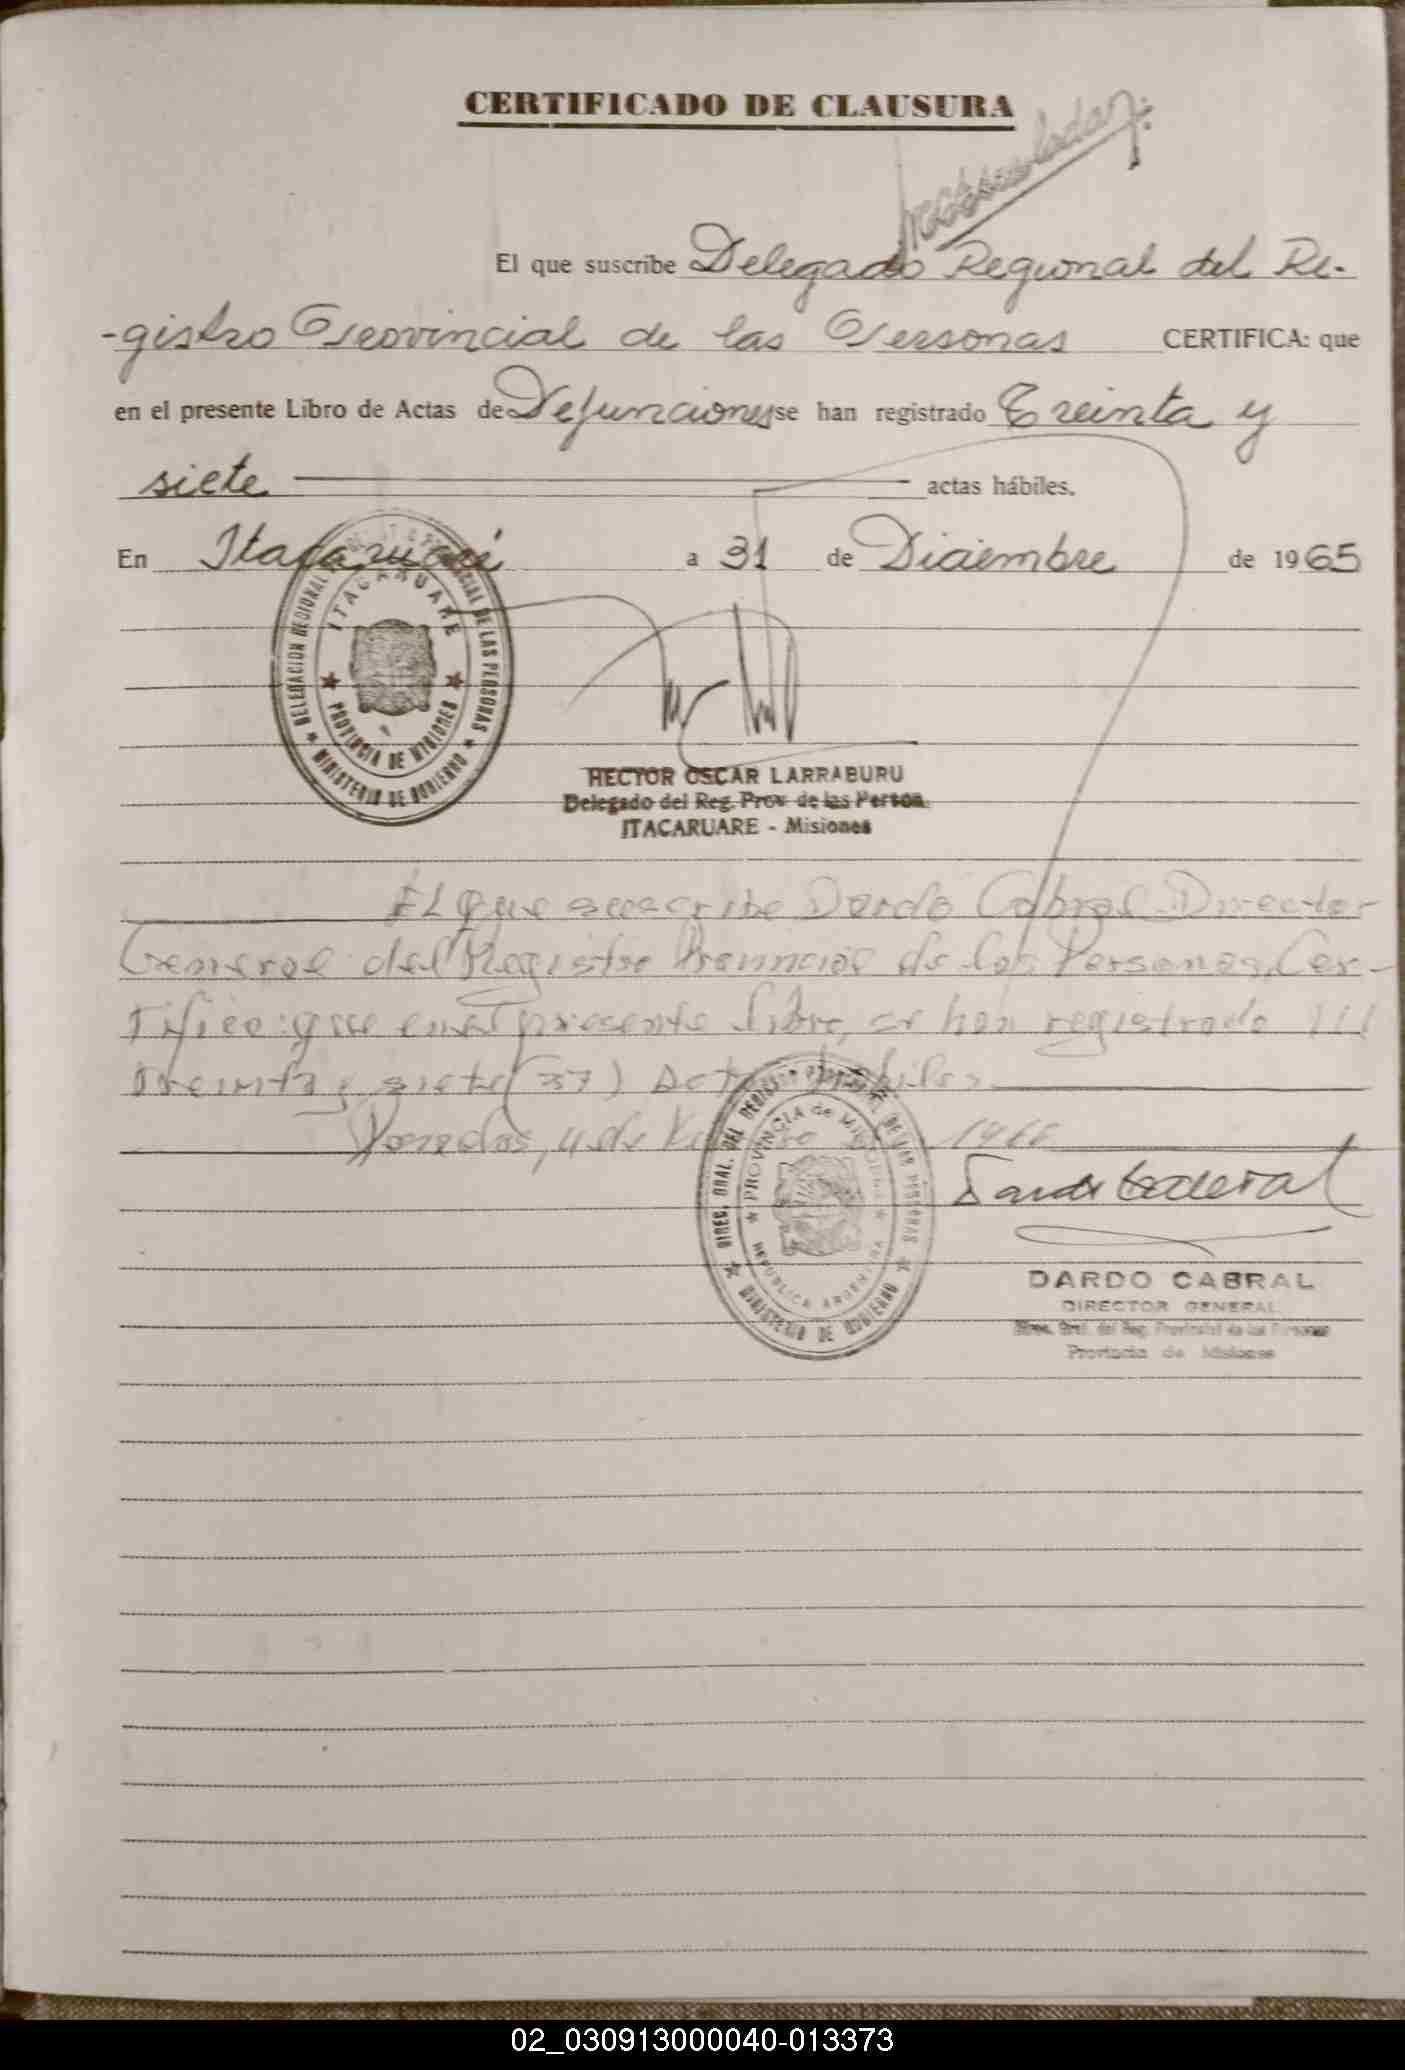 CERTIFICADO DE CLAUSURA
El que suscribe Delegado Regional del Re-
-gistro Provincial de las Personas CERTIFICA: que
en el presente Libro de Actas de Defunciones se han registrado Treinta y
siete actas hábiles.
En Itacaruaré a 31 de Diciembre de 1965
DELEGACION REGIONAL DE LAS PERSONAS
ITACARUARE
PROVINCIA DE MISIONES
MINISTERIO DE GOBIERNO
HECTOR OSCAR LARRABURU
Delegado del Reg. Prov. de las Person.
ITACARUARE - Misiones
El que suscribe Dardo Cabral Director
General del Registro Provincial de las Personas, Cer-
tifico: que en el presente libro, se han registrado
treinta y siete (37) Actas hábiles
Posadas, 4 de 1966
DIREC. GRAL. DEL REGISTRO PROVINCIAL DE LAS PERSONAS
PROVINCIA de MISIONES
REPUBLICA ARGENTINA
MINISTERIO DE GOBIERNO
Dardo Cabral
DARDO CABRAL
DIRECTOR GENERAL
Direc. Gral. del Reg. Provincial de las Personas
Provincia de Misiones
02_030913000040-013373